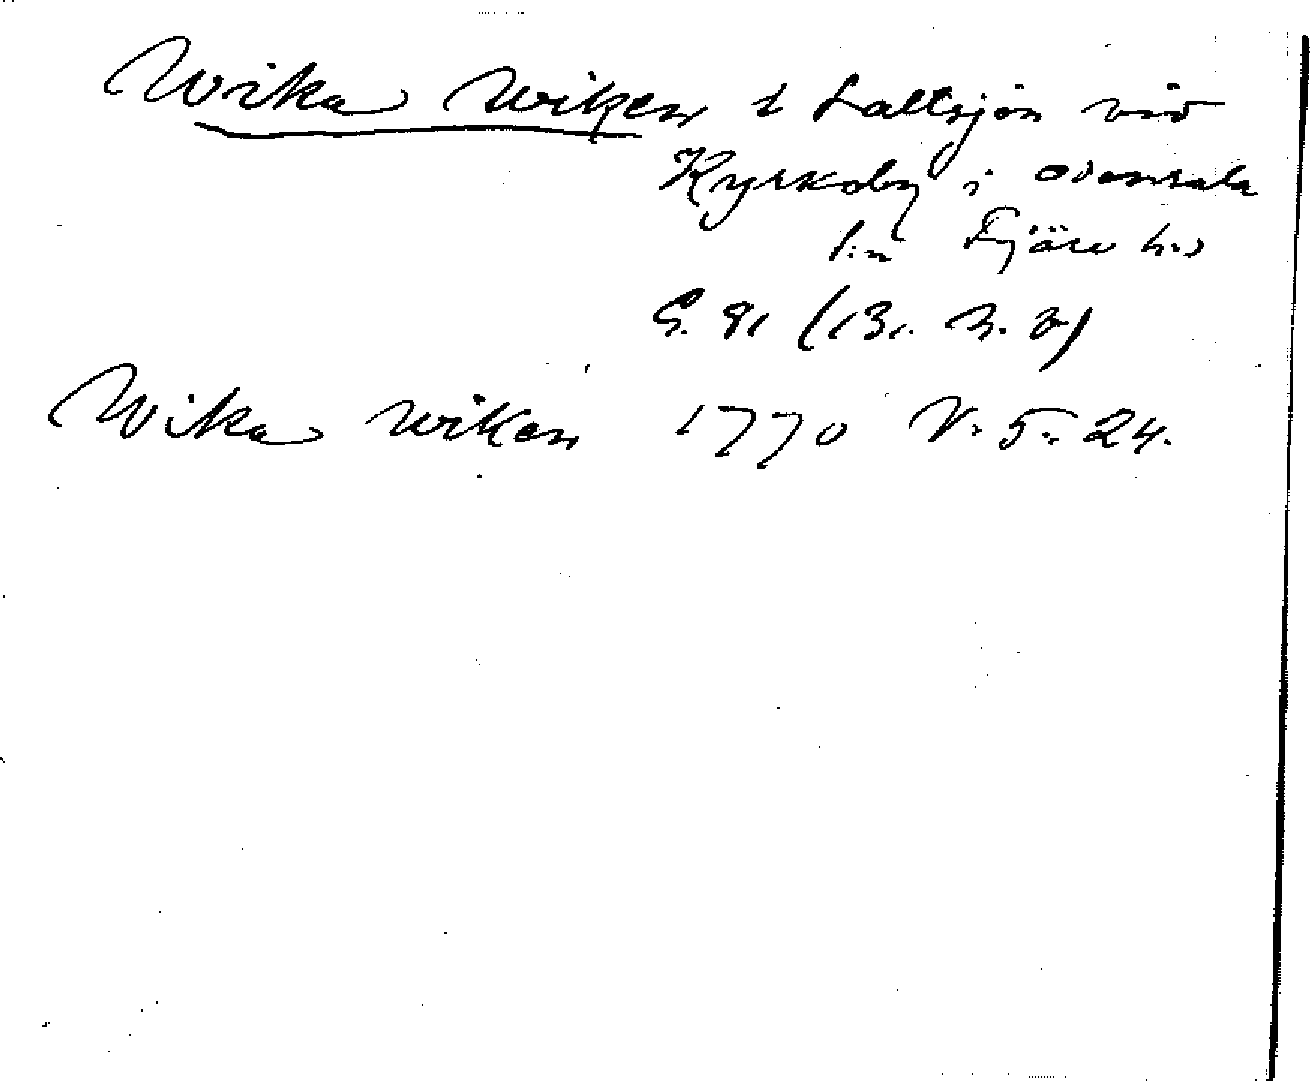 Wika Wiken i Saltsjön vid
Kyrkoby i Odensala
s:n Fjäre h:d
G. 81 (13. 3. v)
Wika wiken 1770 V. 5. 24.